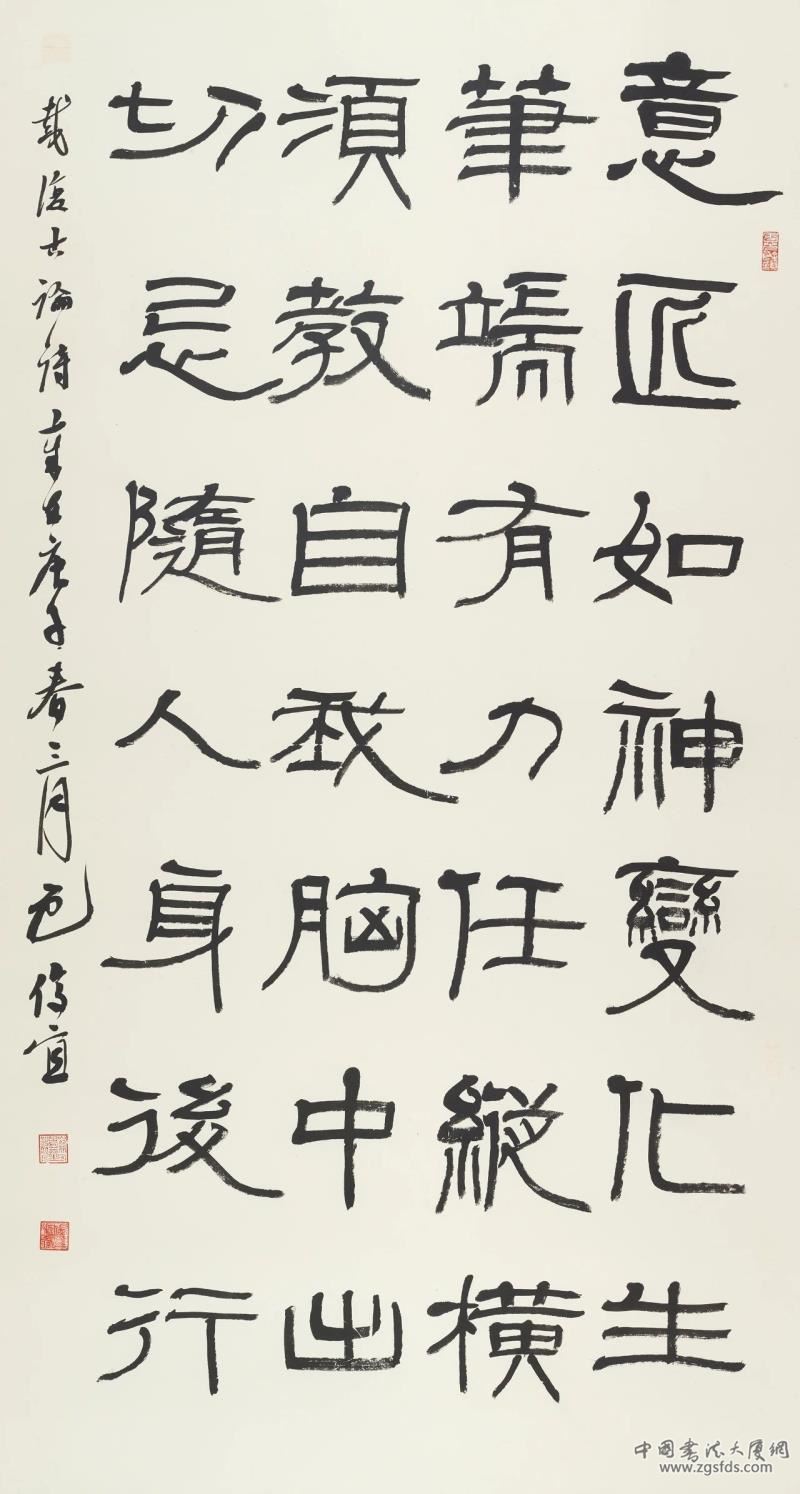 意匠如神變化生
筆端有力任縱橫
須教自我胸中出
切忌隨人身後行
戴復古論詩庚子春三月包俊宜
中国書法大厦網
www.zgsfds.com